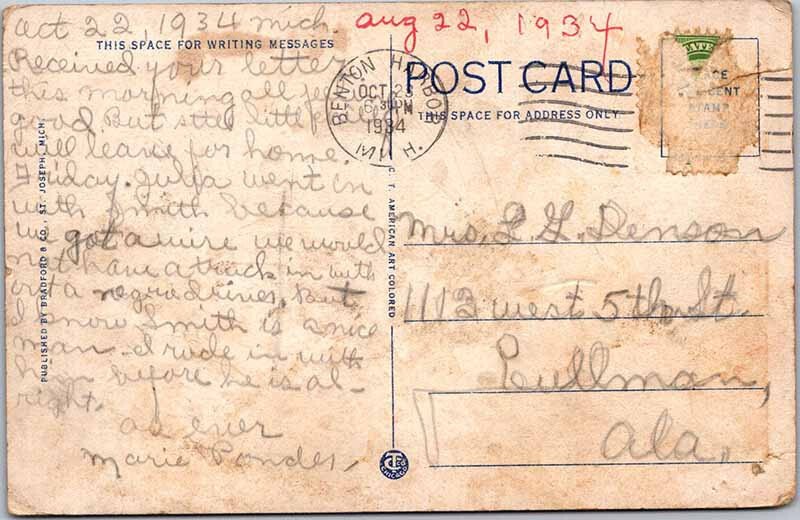 Oct 22, 1934 Mich.
aug 22, 1934
THIS SPACE FOR WRITING MESSAGES
Received your letter
this morning all
good But the little
will leave for home.
Friday. went on
with Smith because
we got a wire we would
not have a truck in with
out a negro driver. But
I know Smith is a nice
man. I rode in with
him before he is al-
right.
as ever
Marie
PUBLISHED BY BRADFORD & CO., ST. JOSEPH, MICH.
C. T. AMERICAN ART COLORED
BENTON HARBOR
OCT 23
6 30 PM
1934
MICH.
POST CARD
THIS SPACE FOR ADDRESS ONLY
PLACE
CENT
STAMP
HERE
Mrs. L. G. Denson
1113 west 5th St.
Cullman,
Ala.
CHICAGO